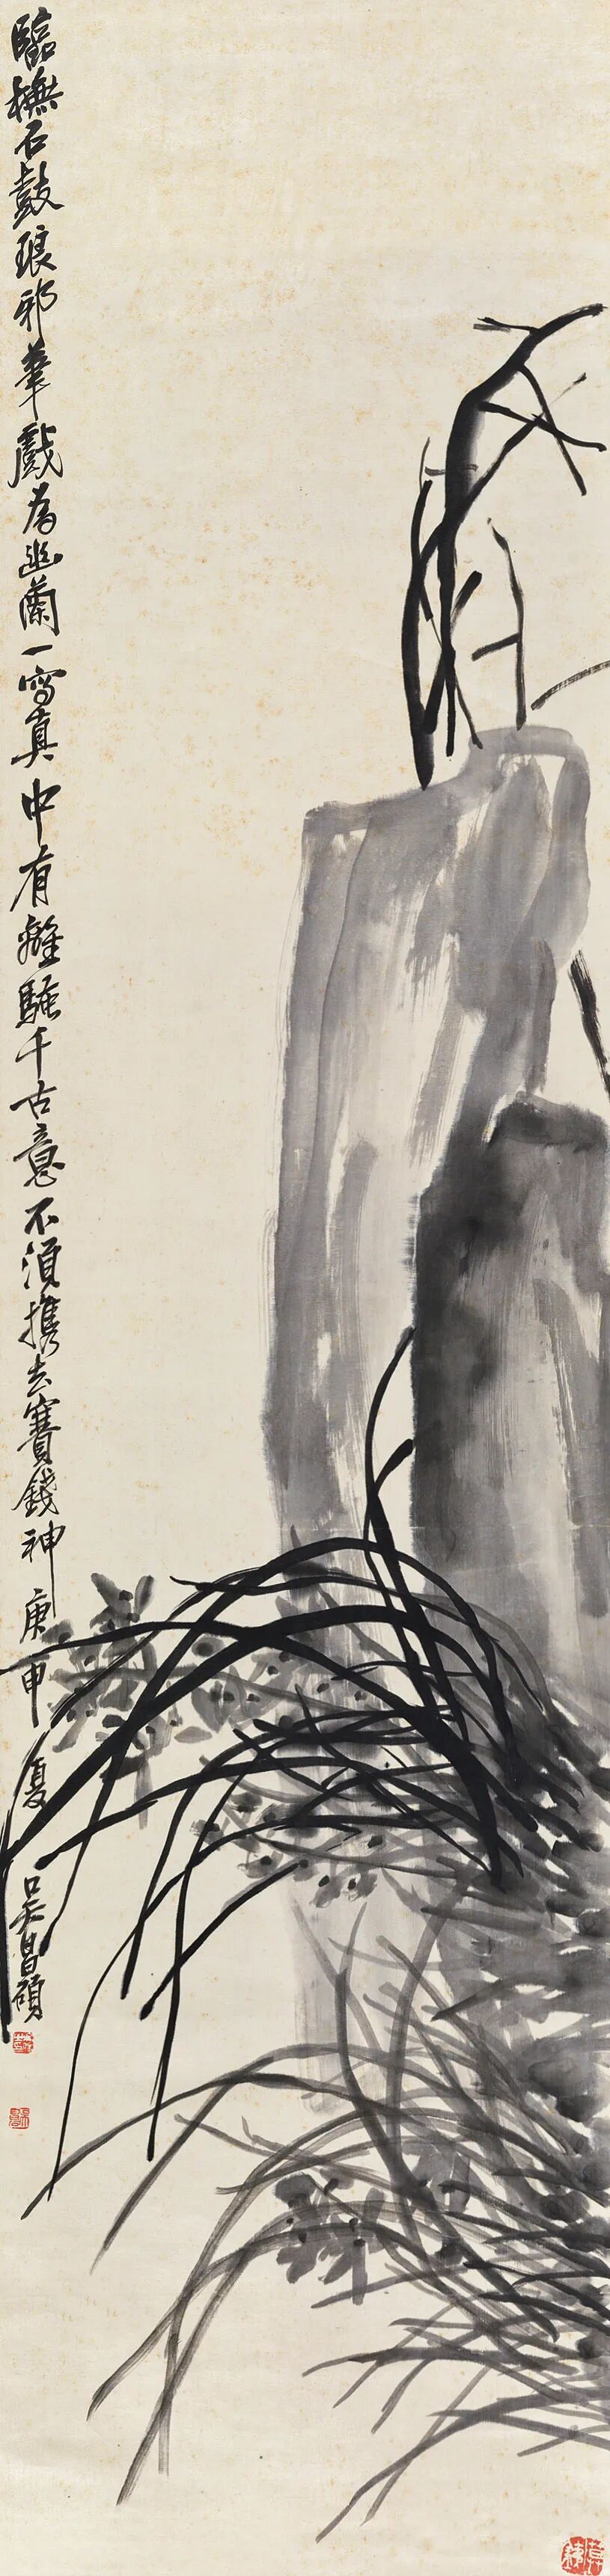 臨橅石鼓琅邪筆戲為幽蘭一寫真中有離騷千古意不須攜去賽錢神庚申夏吳昌碩